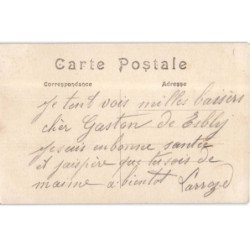 Carte Postale
Correspondance Adresse
Je tent vois milles baisers
cher Gaston de Esbly
je suis en bonne santée
et jaispère que tu sois de
maime a bientot